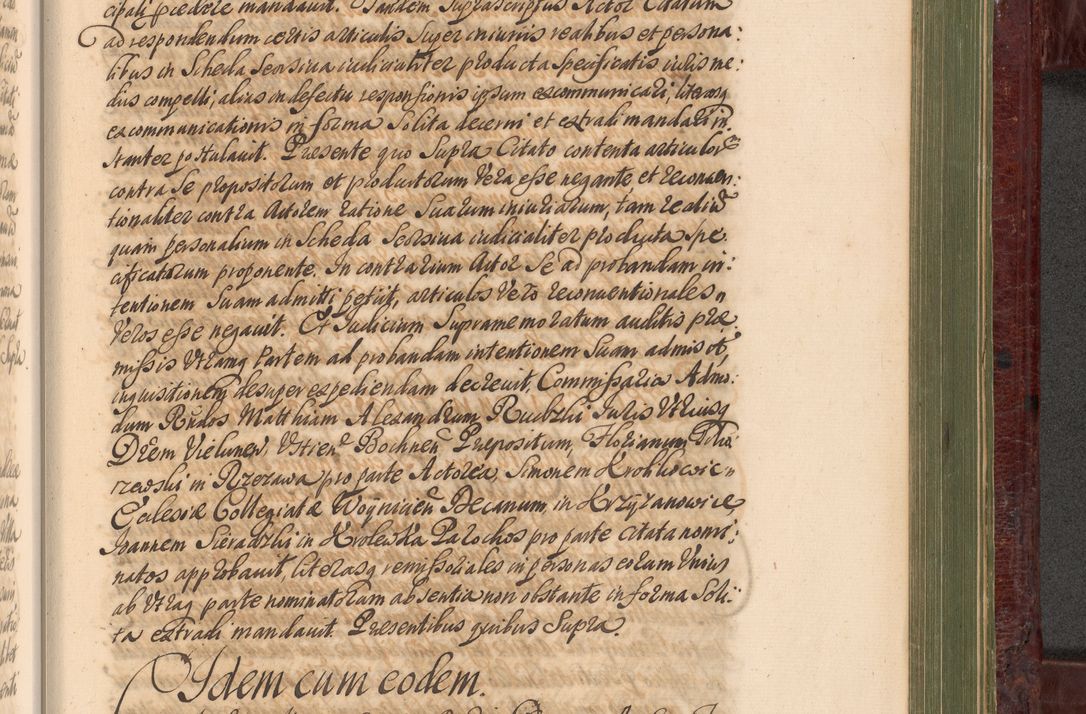 cipali procedere mandavit. Tandem Suprascriptus Actor Citatam
ad respondendum certis articulis super iniuriis realibus et persona:
libus in Scheda Seorsiva iudicialiter producta specificatis iuris re:
diis compelli, alias in defectu responsionis ipsum excommunicari, literasq
excommunicationis in forma Solita decerni et extradi mandari in:
stanter postulavit. Praesente quo Supra Citato contenta articulor
contra Se propositorum et productorum Vera esse negante, et reconven:
tionaliter contra Actorem ratione Suarum iniuriarum, tam realiu
quam personalium in Scheda Seorsiva iudicialiter producta spe:
cificatarum proponente. In contrarium Actor Se ad probandam in:
tentionem Suam admitti petiit, articulos Vero reconventionales
Veros esse negavit. Et Iudicium Supramemoratum auditis prae
missis Utramq Partem ad probandam intentionem Suam admisit,
inquisitionem desuper expediendam decrevit, Commissarios Admo:
dum Rndos Matthiam Alexandrum Rudzki Iuris Utriusq
Drem Vielunen, Uscien Bochnen Praepositum, Florianum
in Rzezawa pro parte Actorea, Simonem Kroblicovic
Ecclesiae Collegiatae Woynicien Decanum, in Krzyżanowice
Ioannem Sieradzki in Krolewka Parochos pro parte citata nomi:
natos approbavit, literasq remissoriales in personas eorum Unius
ab Utraq parte nominatorum absentia non obstante in forma Soli:
ta extradi mandavit. Praesentibus quibus Supra.
Idem cum eodem.